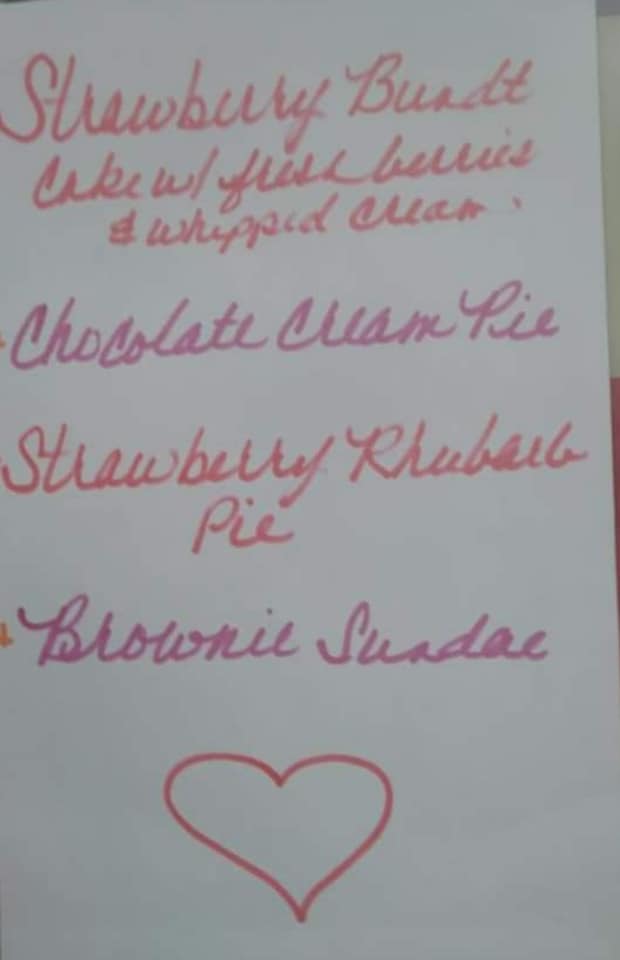 Strawberry Bundt
Cake w/ fresh berries
& whipped cream.
Chocolate Cream Pie
Strawberry Rhubarb
Pie
Brownie Sundae